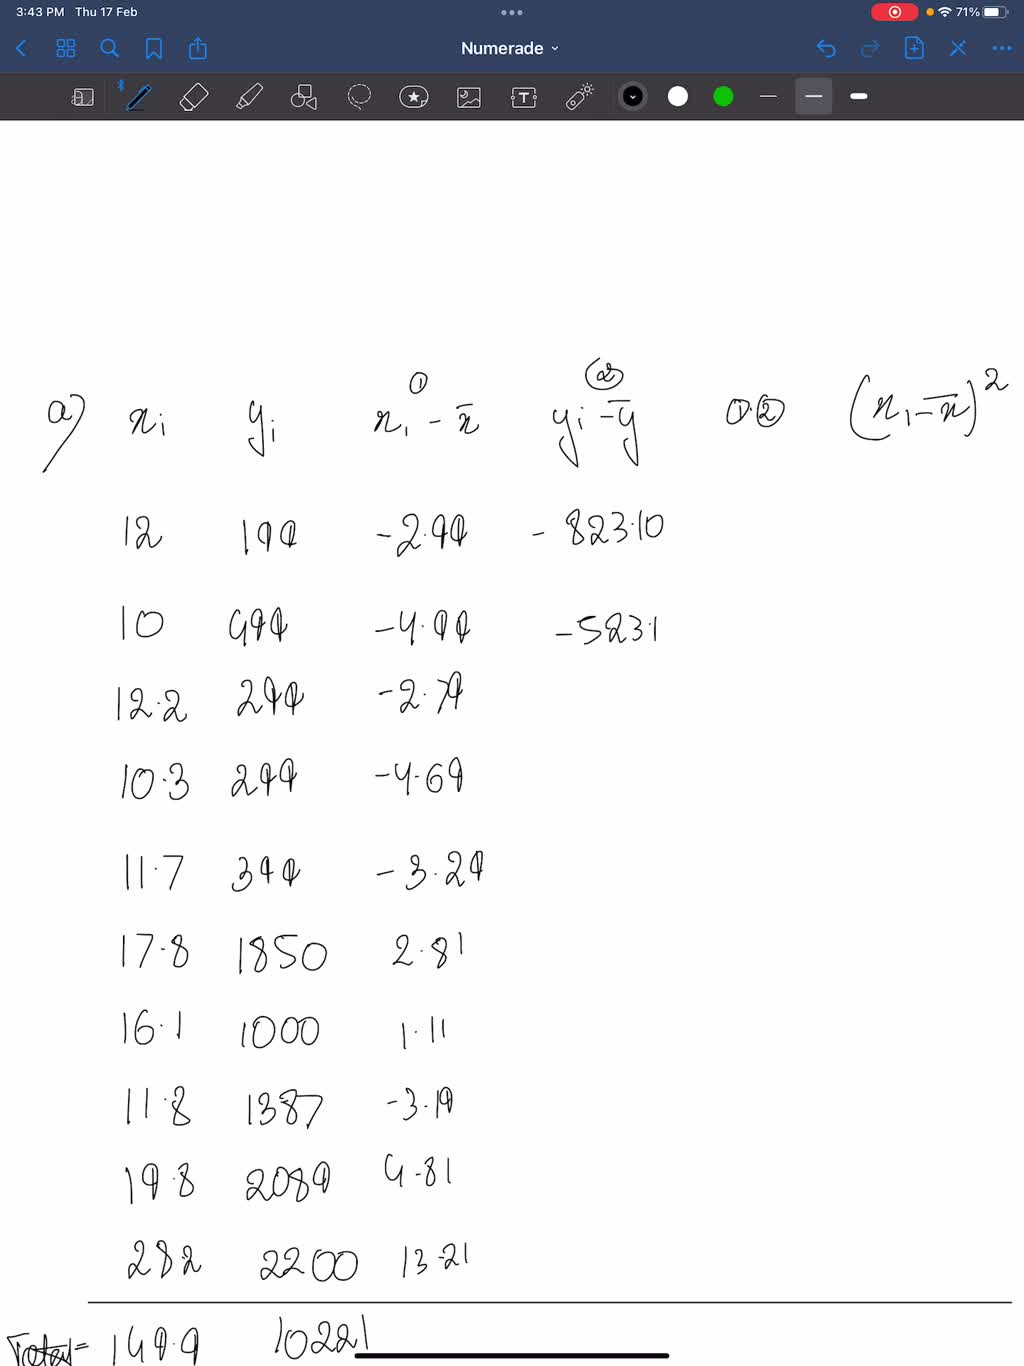 3:43 PM Thu 17 Feb 71%
Numerade
T
① ②
a) xi yi x1 - x̄ yi - ȳ ①·② (x1 - x̄)²
12 199 -2.99 - 823.10
10 499 -4.99 -523.1
12.2 299 -2.79
10.3 299 -4.69
11.7 399 -3.29
17.8 1850 2.81
16.1 1000 1.11
11.8 1387 -3.19
19.8 2089 4.81
28.2 2200 13.21
Total= 149.9 10221